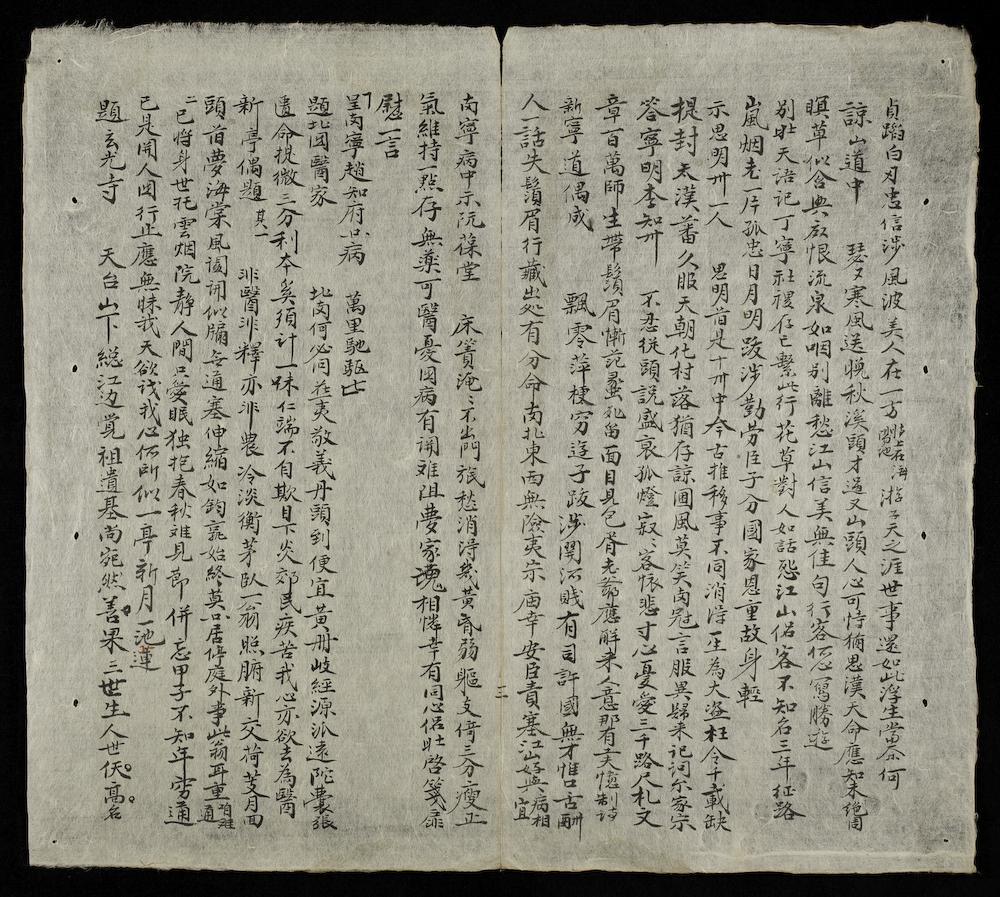 貞蹈白刃忠信涉風波美人在一方游子天之涯世事還如此浮生當奈何
諒山道中　瑟瑟寒風送晚秋溪頭才過又山頭人心可恃猶思漢天命應知未絕周
暝草似含興廢恨流泉如咽別離愁江山信美無佳句行客何心寫勝遊
別壯天語記丁寧社稷存亡繫此行花草對人如話怨江山侶客不知名三年征路
嵐烟老一片孤忠日月明跋涉勤劳臣子分國家恩重故身輕
示思明州一人　思明首是十州中今古推移事不同消浔至為大盜枉令千載缺
提封太漠蕃久服天朝化村落猶存諒圃風莫笑南冠言服異歸來記问尔家宗
答寧明李知州　不忍從頭說盛衰孤燈寂寂客懷悲寸心憂愛三千路尺札文
章百萬師生帶鬚眉慚范蠡死留面目見包胥老爺應解来人意那有工夫慁制詩
新寧道偶成　飄零萍梗穷途子跋涉關河賤有司許國無才惟口舌酬
人一話失鬚眉行藏出处有分命南北東西無險夷宗庙幸安臣責塞江山好與病相宜
三
南寧病中示阮葆堂　床簀淹淹不出門旅愁消淂幾黃昏弱軀支倚三分瘦正
氣維持一點存無藥可醫憂国病有関难阻夢家魂相憐幸有同心侶壯啓箋扉
慰一言
呈南寧趙知府病　萬里馳驅
題北国醫家　北南何必问在夷敬義丹頭到便宜黃冊岐經源派遠陀囊張
匱命提微三分利本奚須计一味仁端不自欺目下炎郊民疾苦我心亦欲去為醫
新亭偶題其一　非醫非釋亦非農冷淡衡茅臥一翁照腑新交荷芰月面
頭首夢海棠風闔闢似牖每通塞伸縮如鈞孰始終莫口居停庭外事此翁耳重
二已將身世托雲烟院静人間只愛眠独抱春秋难見節併忘甲子不知年穷通
已是関人国行止應無昧我天欲识我心何所似一亭新月一池蓮
題玄光寺　天台山下総江边覚祖遺基尚宛然善果三世生人世伏高名